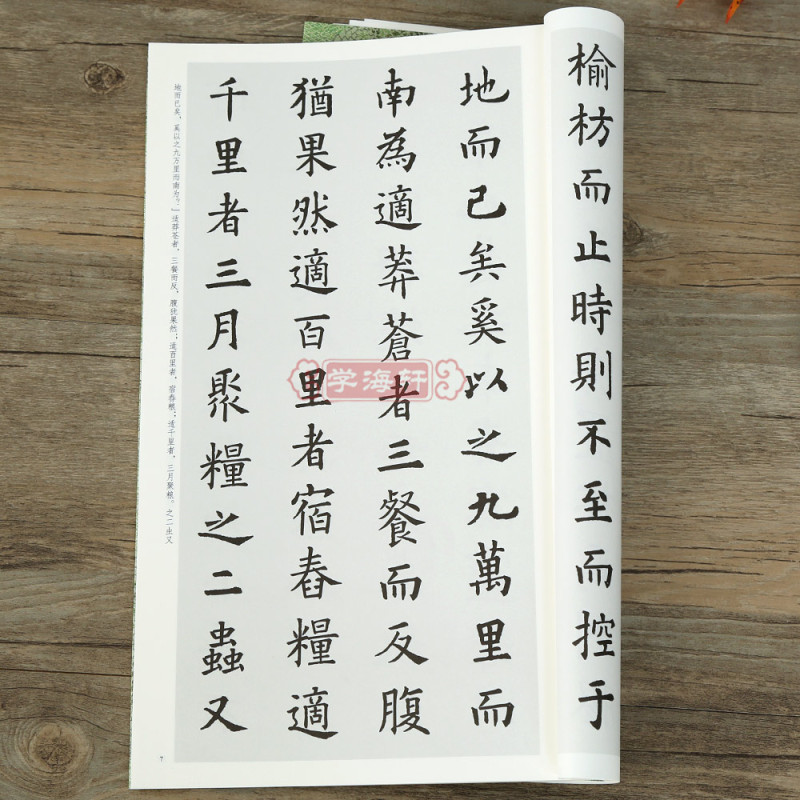 榆枋而止時則不至而控于
地而已矣奚以之九萬里而
南為適莽蒼者三餐而反腹
猶果然適百里者宿舂糧適
千里者三月聚糧之二蟲又
地而已矣，奚以之九万里而南为？」适莽苍者，三餐而反，腹犹果然；适百里者，宿舂粮；适千里者，三月聚粮。之二虫又
学海轩
7